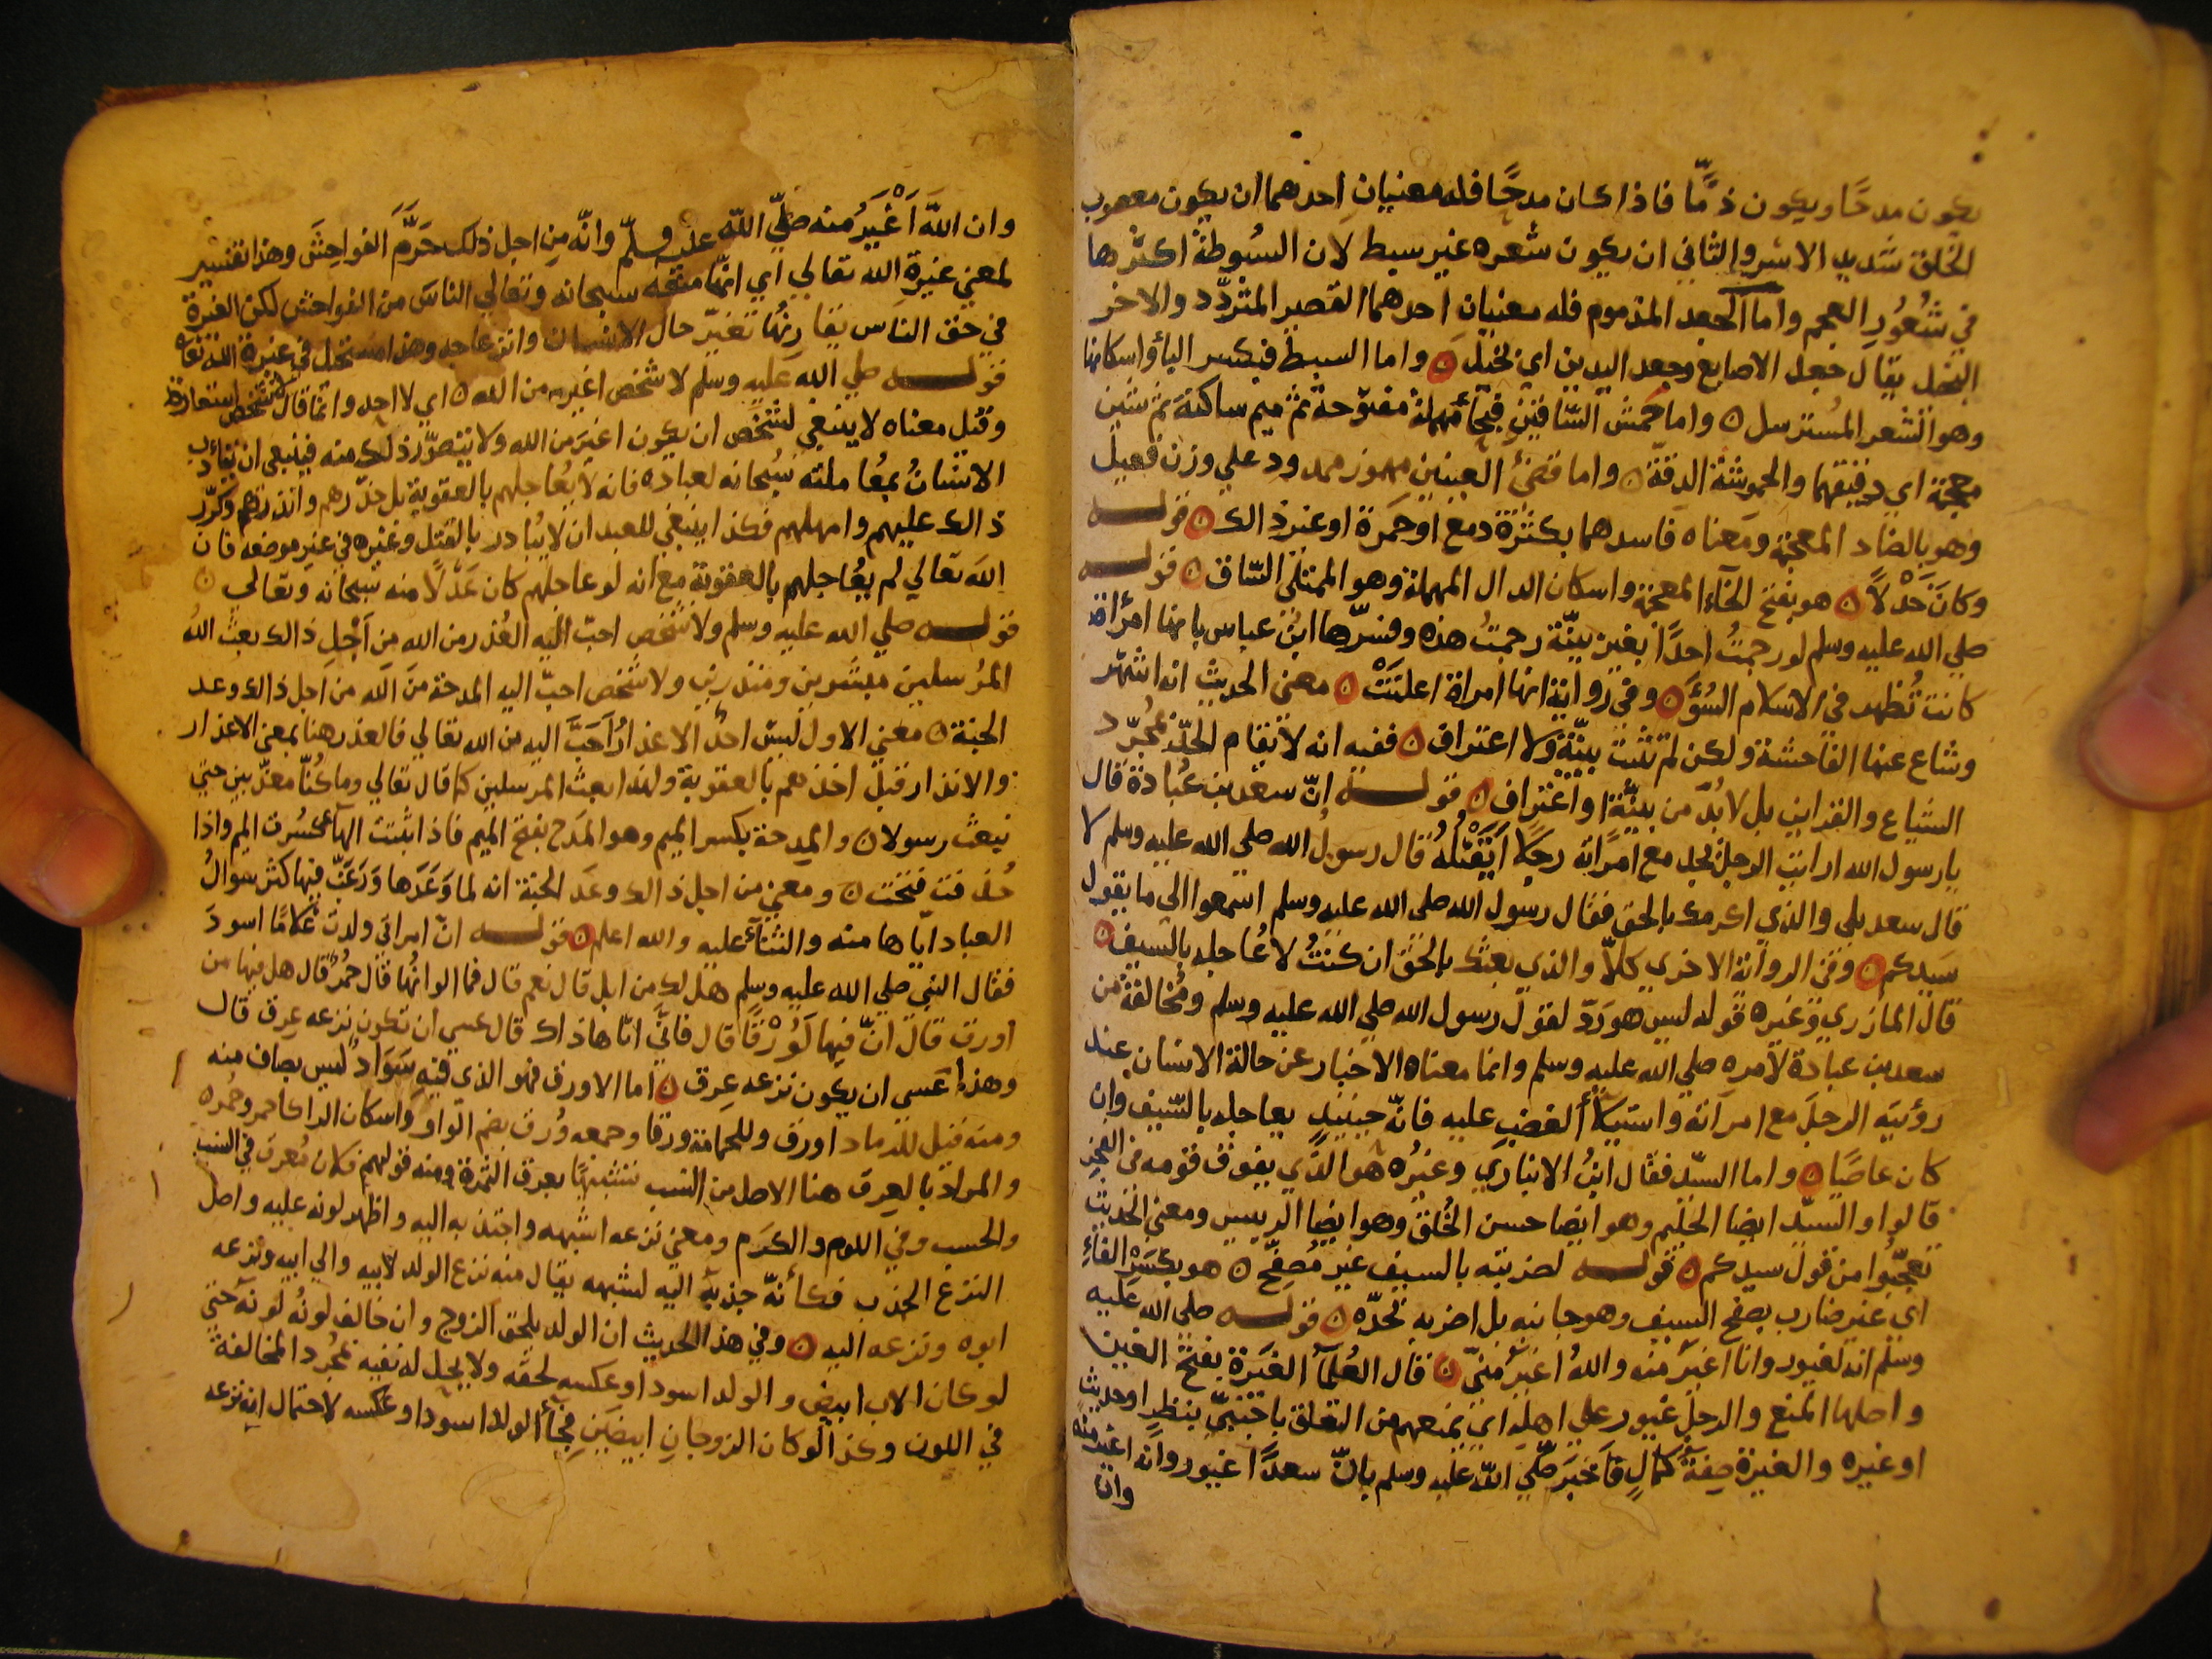 يكون مدحًا ويكون ذمًّا فاذا كان مدحًا فله معنيان احدهما ان يكون معصوب
الخلق شديد الاسر والثاني ان يكون شعره غير سبط لان السُبوطة اكثرها
في شُعُورِ العجم واما الجعد المذموم فله معنيان احدهما القصير المتردّد والاخر
البخيل يقال جعد الاصابع وجعد اليدين اي بخيل ۞ واما السبط فبكسر الباء واسكانها
وهو الشعر المُسترسل ۞ واما حَمش السّاقين فبحاء مهملة مفتوحة ثم ميم ساكنة ثم شين
معجمة اي دقيقهما والحموشة الدقة ۞ واما قضئ العينين مهموز ممدود علي وزن فعيل
وهو بالضاد المعجمة ومعناه فاسدهما بكثرة دمع او حمرة او غير ذالك ۞ قوله
وكان خَدْلاً ۞ هو بفتح الخاء المعجمة واسكان الدال المهملة وهو الممتلي السّاق ۞ قوله
صلي الله عليه وسلم لو رجمتُ احدًا بغير بيّنة رجمتُ هذه وفسّرها ابنُ عباس بانها امراة
كانت تُظهر في الاسلام السُوءَ ۞ وفي رواية انها امراة اعلنَتْ ۞ معنى الحديث انه اشتهر
وشاع عنها الفاحشة ولكن لم تثبت ببيّنة ولا اعتراف ۞ ففيه انه لا يقام الحدّ بمُجرّد
الشياع والقراين بل لا بُدّ من بيّنة او اعتراف ۞ قوله انّ سعد بن عُبادة قال
يا رسول الله ارايت الرجل يجد مع امراته رجلا اَيَقْتُلُهُ قال رسول الله صلي الله عليه وسلم لا
قال سعد بلي والذي اكرمك بالحق فقال رسول الله صلي الله عليه وسلم اسمعوا الى ما يقول
سيدكم ۞ وفي الرواية الاخري كلّا والذي بعثك بالحق ان كنتُ لاعُاجله بالسيف ۞
قال المازري وغيره قوله ليس هو رَدّ لقول رسول الله صلي الله عليه وسلم ومُخالفة من
سعد بن عبادة لامره صلي الله عليه وسلم وانما معناه الاخبار عن حالة الانسان عند
رؤيته الرجلَ مع امراته واستيلاء الغضب عليه فانّه حينيذٍ يعاجله بالسّيف وان
كان عاصيًا ۞ واما السيّد فقال ابنُ الانباري وغيرُه هو الذّي يفوق قومه في الفخر
قالوا والسيّد ايضا الحليم وهو ايضا حسن الخُلق وهو ايضا الرييس ومعني الحديث
تعجّبُوا من قول سيدكم ۞ قوله لضربته بالسيف غيرَ مُصفِّح ۞ هو بكسر الفاء
اي غير ضارب بصفح السيف وهو جانبه بل اضربه بحدّه ۞ قوله صلي الله عليه
وسلّم انه لغيور وانا اغير منه واللهُ اغير منيّ ۞ قال العُلمآ الغَيرة بفتح الغين
واصلها المنع والرجل غيور علي اهله اي يمنعهم من التعلق باجنبيّ بنظرٍ او حديث
او غيره والغيرة صِفة كمَالٍ فاَخبَرَ صلّي اللّه عليه وسلم بانّ سعدًا غيور وانه اغير منه
وان
وان اللّه اَغْيَرُ منه صلّي اللّه عليه وسلّم وانّه مِن اجل ذلك حَرَّمَ الفواحِشَ وهذا تفسير
لمعني غيرة الله تعالي اي انّها منعُه سبحانه وتعالي الناسَ من الفواحش لكن الغيرة
في حق الناس يقارنُها تغيّر حال الانسان وانزعاجه وهذا مستحيل في غيرة الله تعا
قوله صلي الله عليه وسلم لا شخص اغير من الله ۞ اي لا احد وانما قال لا شخص استعارة
وقيل معناه لا ينبغي لشخص ان يكون اغيرَ من الله ولا يتصوّر ذلك منه فينبغي ان يتادّب
الانسانُ بمُعاملته سُبحانه لعباده فانه لا يُعاجلهم بالعقوبة بل حذّرهم وانذرهم وكرّر
ذالك عليهم وامهلهم فكذا ينبغي للعبد ان لا يُبادر بالقتل وغيره في غير موضعه فان
الله تعالي لم يُعاجلهم بالعقوبة مع انه لو عاجلهم كان عَدْلاً منه سبحانه وتعالي ۞
قوله صلي الله عليه وسلم ولا شخص احبّ اليه العُذر من الله مِن اَجْلِ ذالك بعثَ اللهُ
المُرسلين مبشرين ومنذرين ولا شخص احبّ اليه المدحة من اللّه من اجل ذالك وعد
الجنة ۞ معني الاول ليس احدٌ الاعذارُ اَحَبَّ اليه من الله تعالي فالعذر هنا بمعني الاعذار
والانذار قبل اخذهم بالعقوبة ولهذا بعث المرسلين كما قال تعالي وما كُنّا معذّبين حتي
نبعث رسولا ۞ والمِدحة بكسر الميم وهو المَدح بفتح الميم فاذا اثبتت الهآء كُسرت الميم واذا
حُذفت فتحت ۞ ومعني من اجل ذالك وعَد الجنة انه لما وَعَدَها وَرَغبّ فيها كثر سُوالُ
العباد ايّاها منه والثناء عليه والله اعلم ۞ قوله انّ امراتي ولدت غلامًا اسودَ
فقال النبي صلي الله عليه وسلم هل لك من ابل قال نعم قال فما الوانُها قال حُمرٌ قال هل فيها من
اورق قال انّ فيها لَوُرْقًا قال فانّي اتّاها ذاك قال عسي ان تكون نزعه عِرق قال
وهذا عَسي ان يكون نزعه عِرق ۞ اما الاورق فهو الذي فيه سَوَادٌ ليس بصاف منه
ومنه قيل للرماد اورق وللحمامة ورقا وجمعه وُرق بضم الواو واسكان الرا كاحمر وحُمره
والمراد بالعِرق هنا الاصل من النسب تشبيهًا بعرق الثمرة ومنه قولهم فلان مُعرق في النسب
والحسب وفي اللوم والكرَم ومعني نزعه اشبهه واجتذبه اليه واظهر لونه عليه واصل
النزع الجذب فكانّه جذبه اليه لشبهه يقال منه نزع الولد لابيه والي ابيه ونزعه
ابوه ونزعه اليه ۞ وفي هذا الحديث ان الولد يلحق الزوج وان خالف لونُه لونه حتي
لو كان الاب ابيض والولد اسود او عكسه لحقه ولا يحل له نفيه بمُجرد المخالفة
في اللون وكذا لو كان الزوجانِ ابيضَينِ فجاء الولد اسود او عكسه لاحتمال انه نزعه